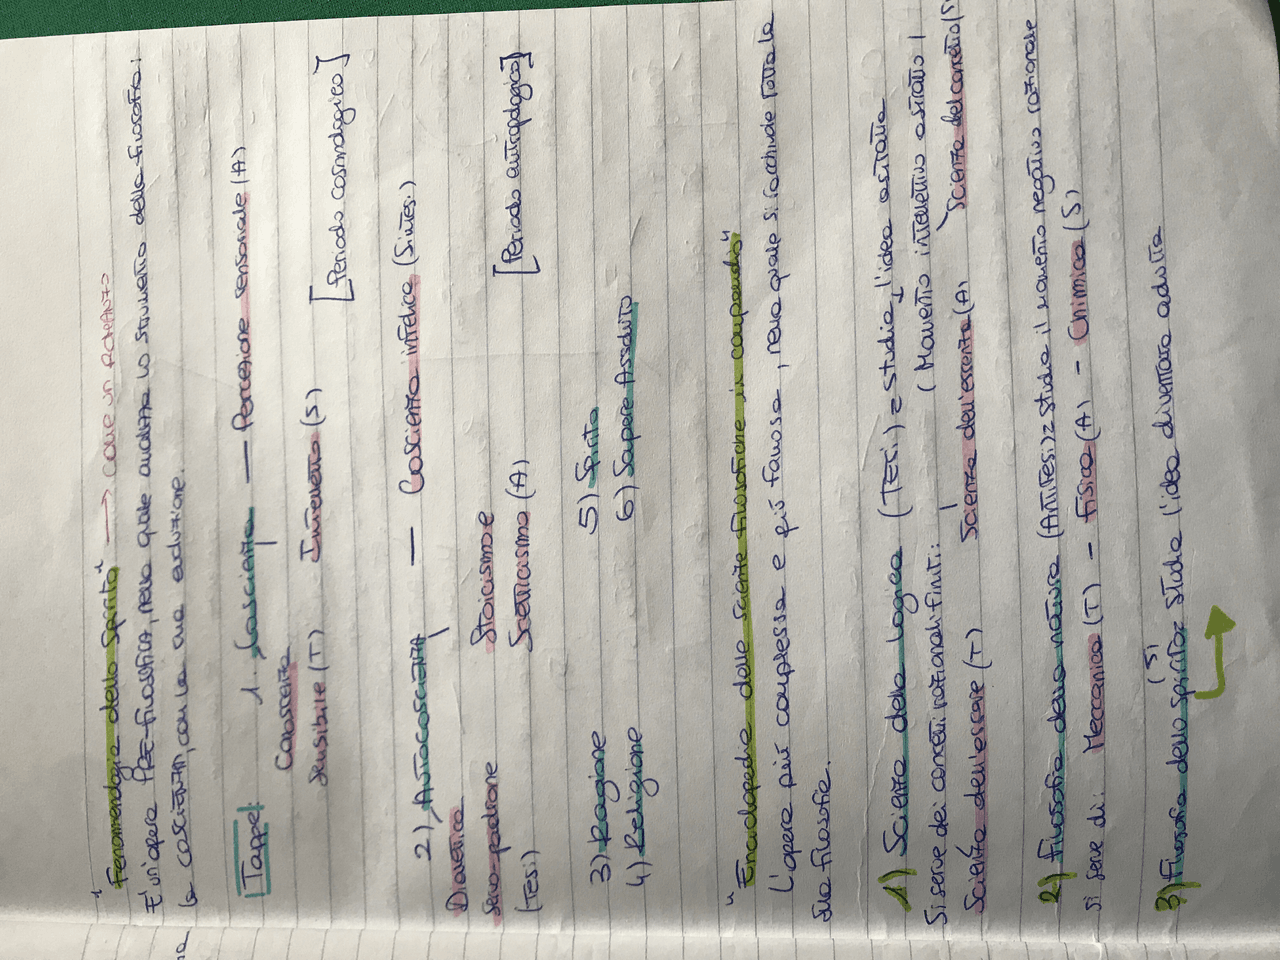 "Fenomenologia dello Spirito" → come un romanzo
È un'opera PRE-filosofica, nella quale analizza lo strumento della filosofia:
la coscienza, con la sua evoluzione.
[Tappe] 1. Coscienza — Percezione sensoriale (A)
Conoscenza
sensibile (T) Intelletto (S) [Periodo cosmologico]
2) Autocoscienza — Coscienza infelice (Sintesi)
Dialettica
servo-padrone Stoicismo e
(Tesi) Scetticismo (A) [Periodo antropologico]
3) Ragione 5) Spirito
4) Religione 6) Sapere Assoluto
"Enciclopedia delle scienze filosofiche in compendio"
L'opera più complessa e più famosa, nella quale si racchiude tutta la
sua filosofia.
1) Scienza della logica (TESI) = studia l'idea astratta
Si serve dei concetti razionali finiti: (Momento intellettivo astratto)
Scienza dell'essere (T) Scienza dell'essenza (A) Scienza del concetto (S
2) Filosofia della natura (ANTITESI) = studia il momento negativo razionale
Si serve di: Meccanica (T) - Fisica (A) - Chimica (S)
3) Filosofia dello spirito (S) = studia l'idea diventata adulta